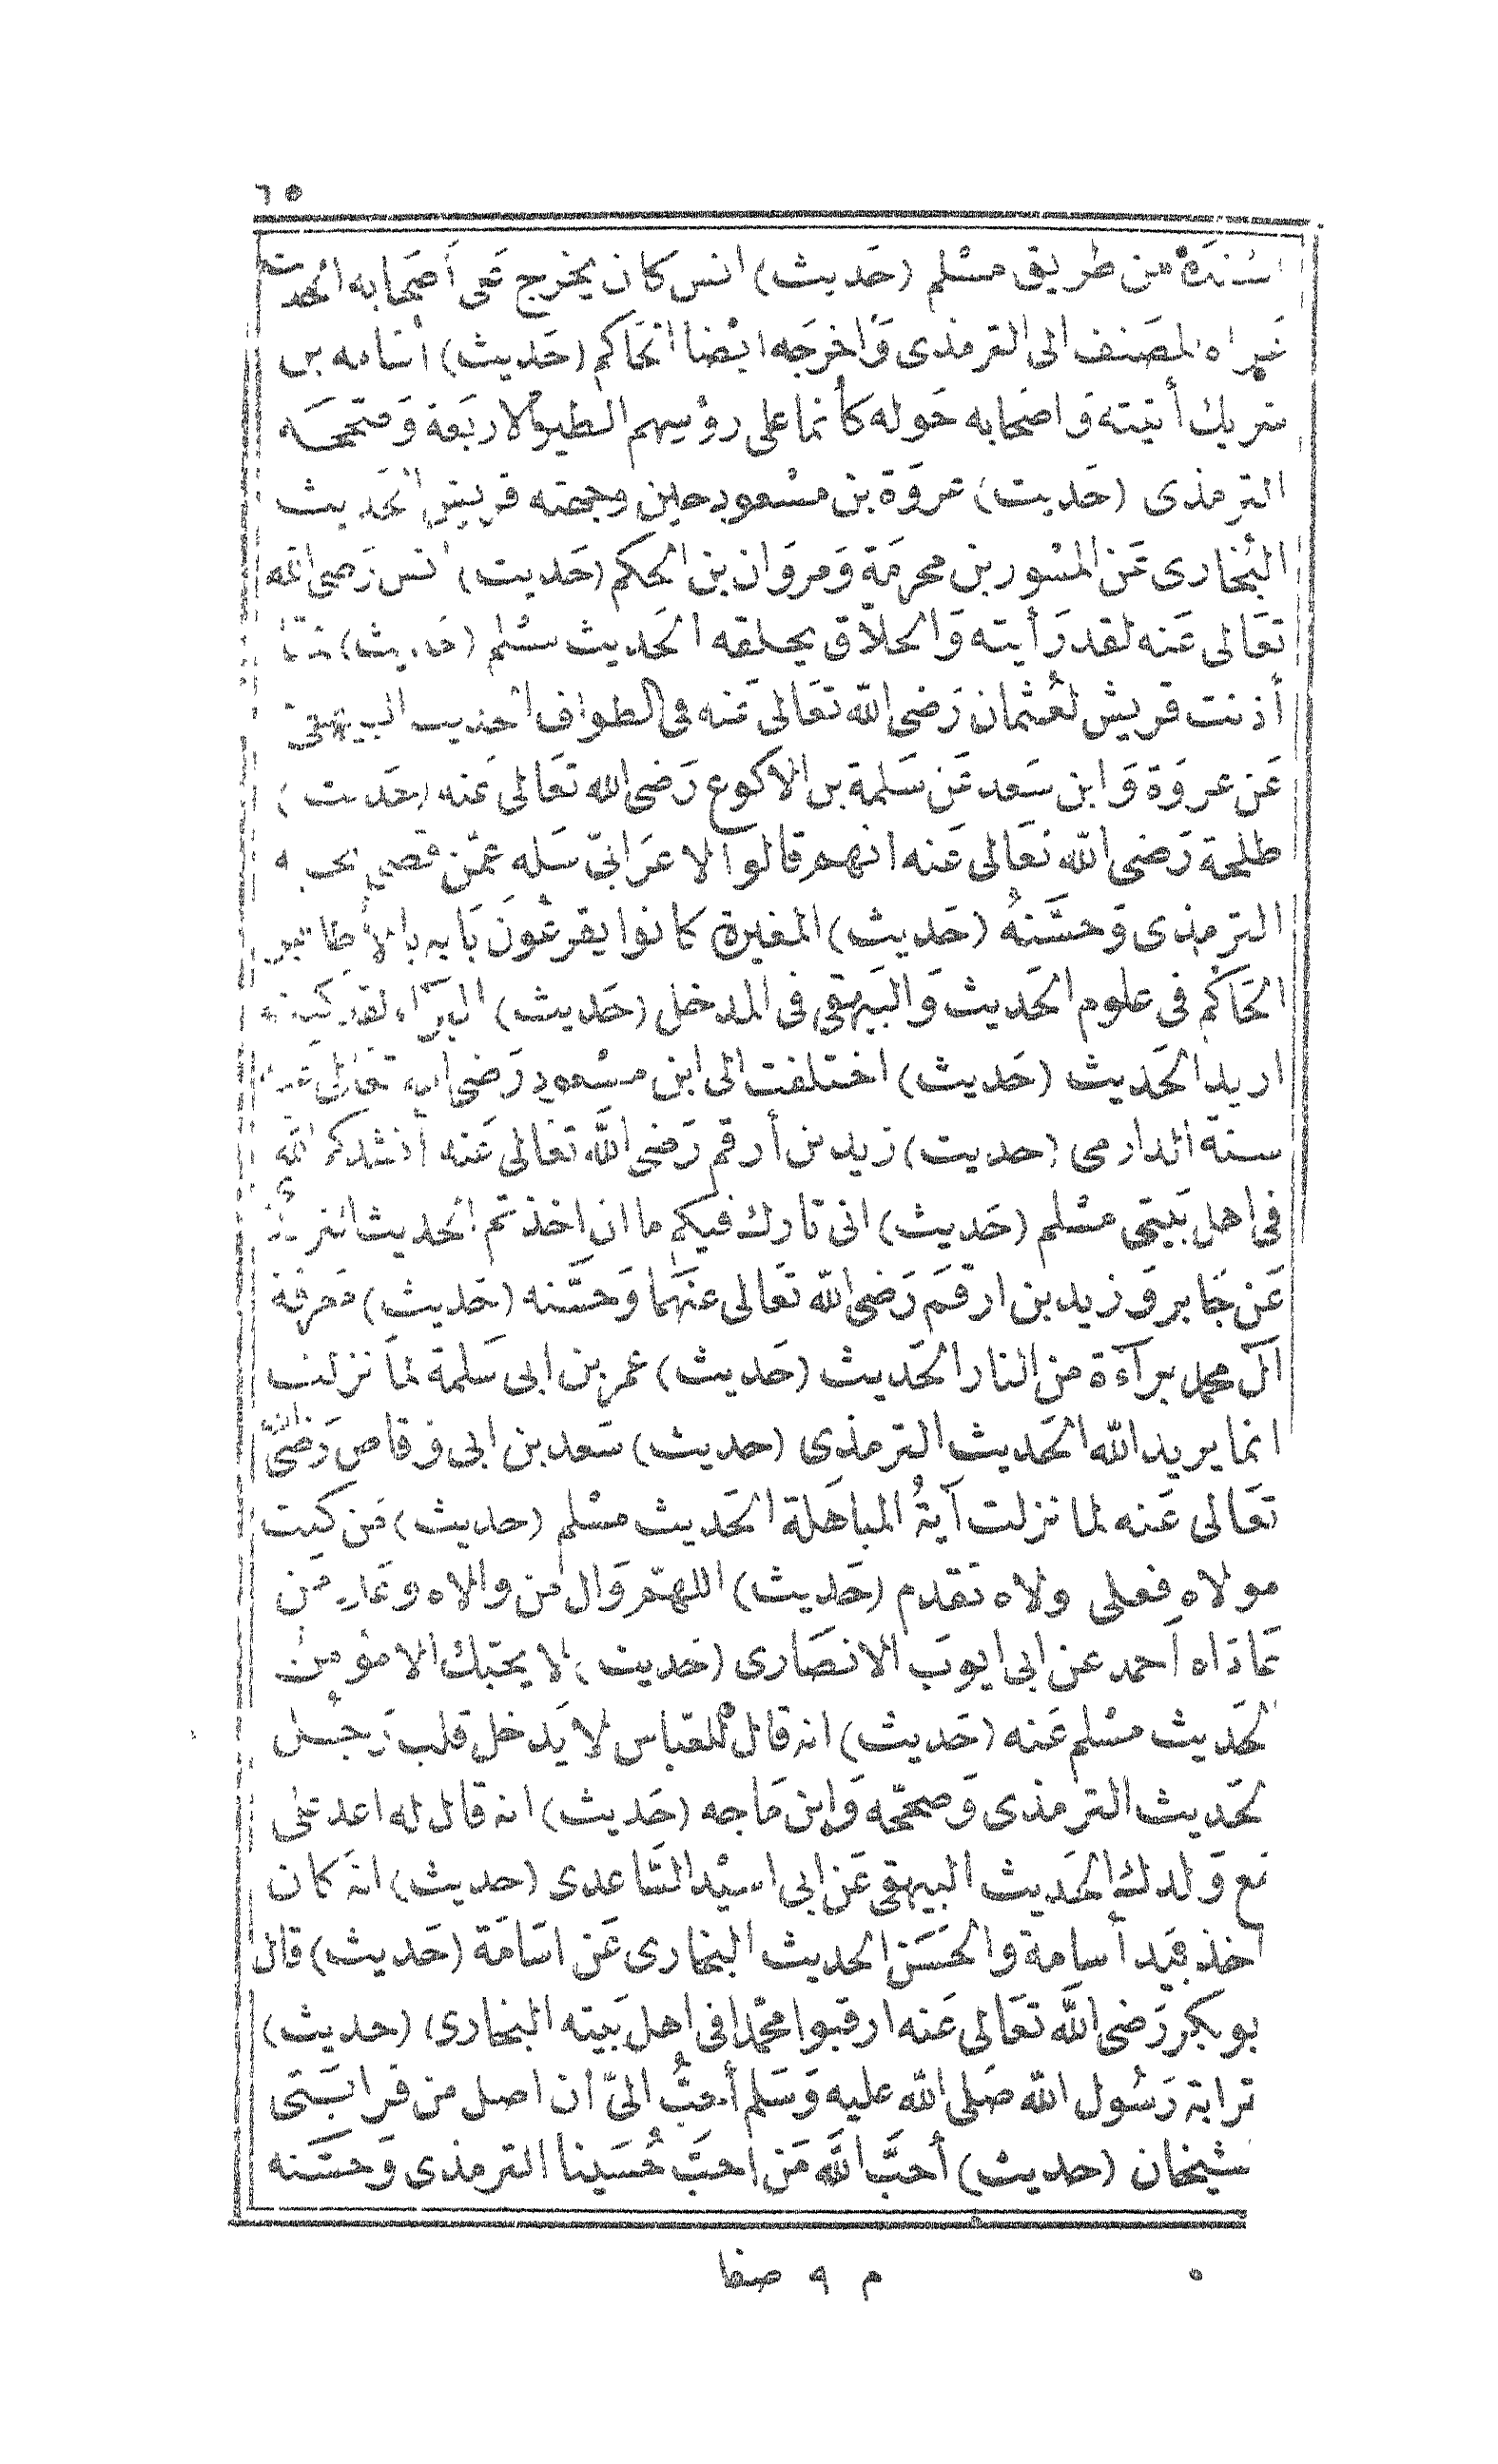 ٦٥
اسنده من طريق مسلم (حَديث) انس كان يخرج عَلى أصحَابه الحديث
عَزاه المصَنف الى الترمذى وَاخرجَه ايضا الحَاكم (حَديث) اسَامه بن
شريك أتيته وَاصحابه حَوله كأنما على رؤسهم الطير الاربَعة وَصَححَه
الترمذى (حَديث) عروَة بن مسْعود حين وجهته قريش الحَديث
البُخارى عَن المسْور بن محرمَة وَمروَان بن الحكم (حَديث) انس رَضى الله
تعَالى عَنه لقد رَأيته وَالحلاَّق يحلقه الحَديث مسْلم (حَديث) لما
أذنت قريش لعُثمان رَضى الله تعَالى عَنه فى الطواف الحَديث البيهقى
عَن عروَة وَابن سَعد عَن سَلمة بن الاكوع رَضى الله تعَالى عَنه (حَديث)
طلحة رَضى الله تعَالى عَنه انهم قالوا لاعرَابىّ سَله عمّن قضى نحبه
الترمذى وَحسَّنهُ (حَديث) المغيرة كانوا يقرعُونَ بَابه بالأظافير
الحَاكم فى علوم الحَديث وَالبَيهقى فى المدخل (حَديث) البرَآء لقد كنت
اريد الحَديث (حَديث) اختلفت الى ابن مسْعود رَضى الله تعَالى عَنه
سنة الدارمى (حديث) زيد بن أرقم رَضى الله تعَالى عَنه أنشدكم الله
فى اهل بَيتى مسْلم (حَديث) انى تارك فيكم ما ان اخذتم الحديث الترمذى
عَن جَابر وَزيد بن ارقَم رَضى الله تعَالى عنهَما وَحسَّنه (حَديث) مَعرفة
آل محمد برآءة من النار الحَديث (حَديث) عمر بن ابى سَلمة لما نزلت
انما يريد الله الحَديث الترمذى (حديث) سَعد بن ابى وَقاص رَضى الله
تعَالى عَنه لما نزلت آيَةُ المباهَلة الحَديث مسْلم (حديث) مَن كنت
مولاه فعلى ولاه تقدم (حَديث) اللهمّ وَال من والاه وعَاد مَن
عَادَاه أحمد عن ابى ايوبَ الانصَارى (حَديث) لا يحبّك الا مؤمن
لحَديث مسْلم عَنه (حَديث) انه قال للعَباس لا يَدخل قلب رَجل
لحَديث الترمذى وَصححّه وَابن مَاجه (حَديث) انه قال له اغد عَلى
مع وَلدك الحَديث البيهقى عَن ابى اسيْد السَّاعدى (حديث) انه كان
اخذ بيَد أسامة والحَسَن الحديث البخارى عَن اسَامَة (حَديث) قال
بو بكر رَضى الله تعَالى عَنه ارقبوا محمّدا فى اهل بَيته البخارى (حديث)
قرابة رَسُول الله صَلى الله عليه وَسَلم أحبُّ الىّ ان اصل من قرابَتى
شيخان (حديث) أحبَّ الله مَن احبَّ حُسَينا الترمذى وَحسَّنه
م ٩ صفا